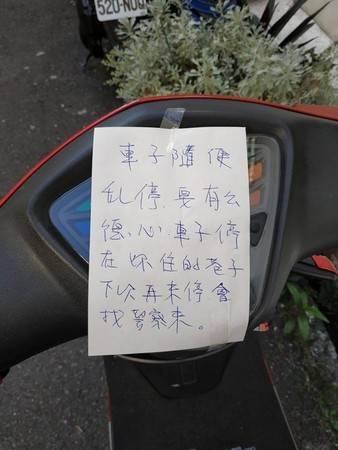 520-NUQ
車子隨便
乱停.要有公
德.心.車子停
在妳住的巷子
下次再来停會
找警察来。